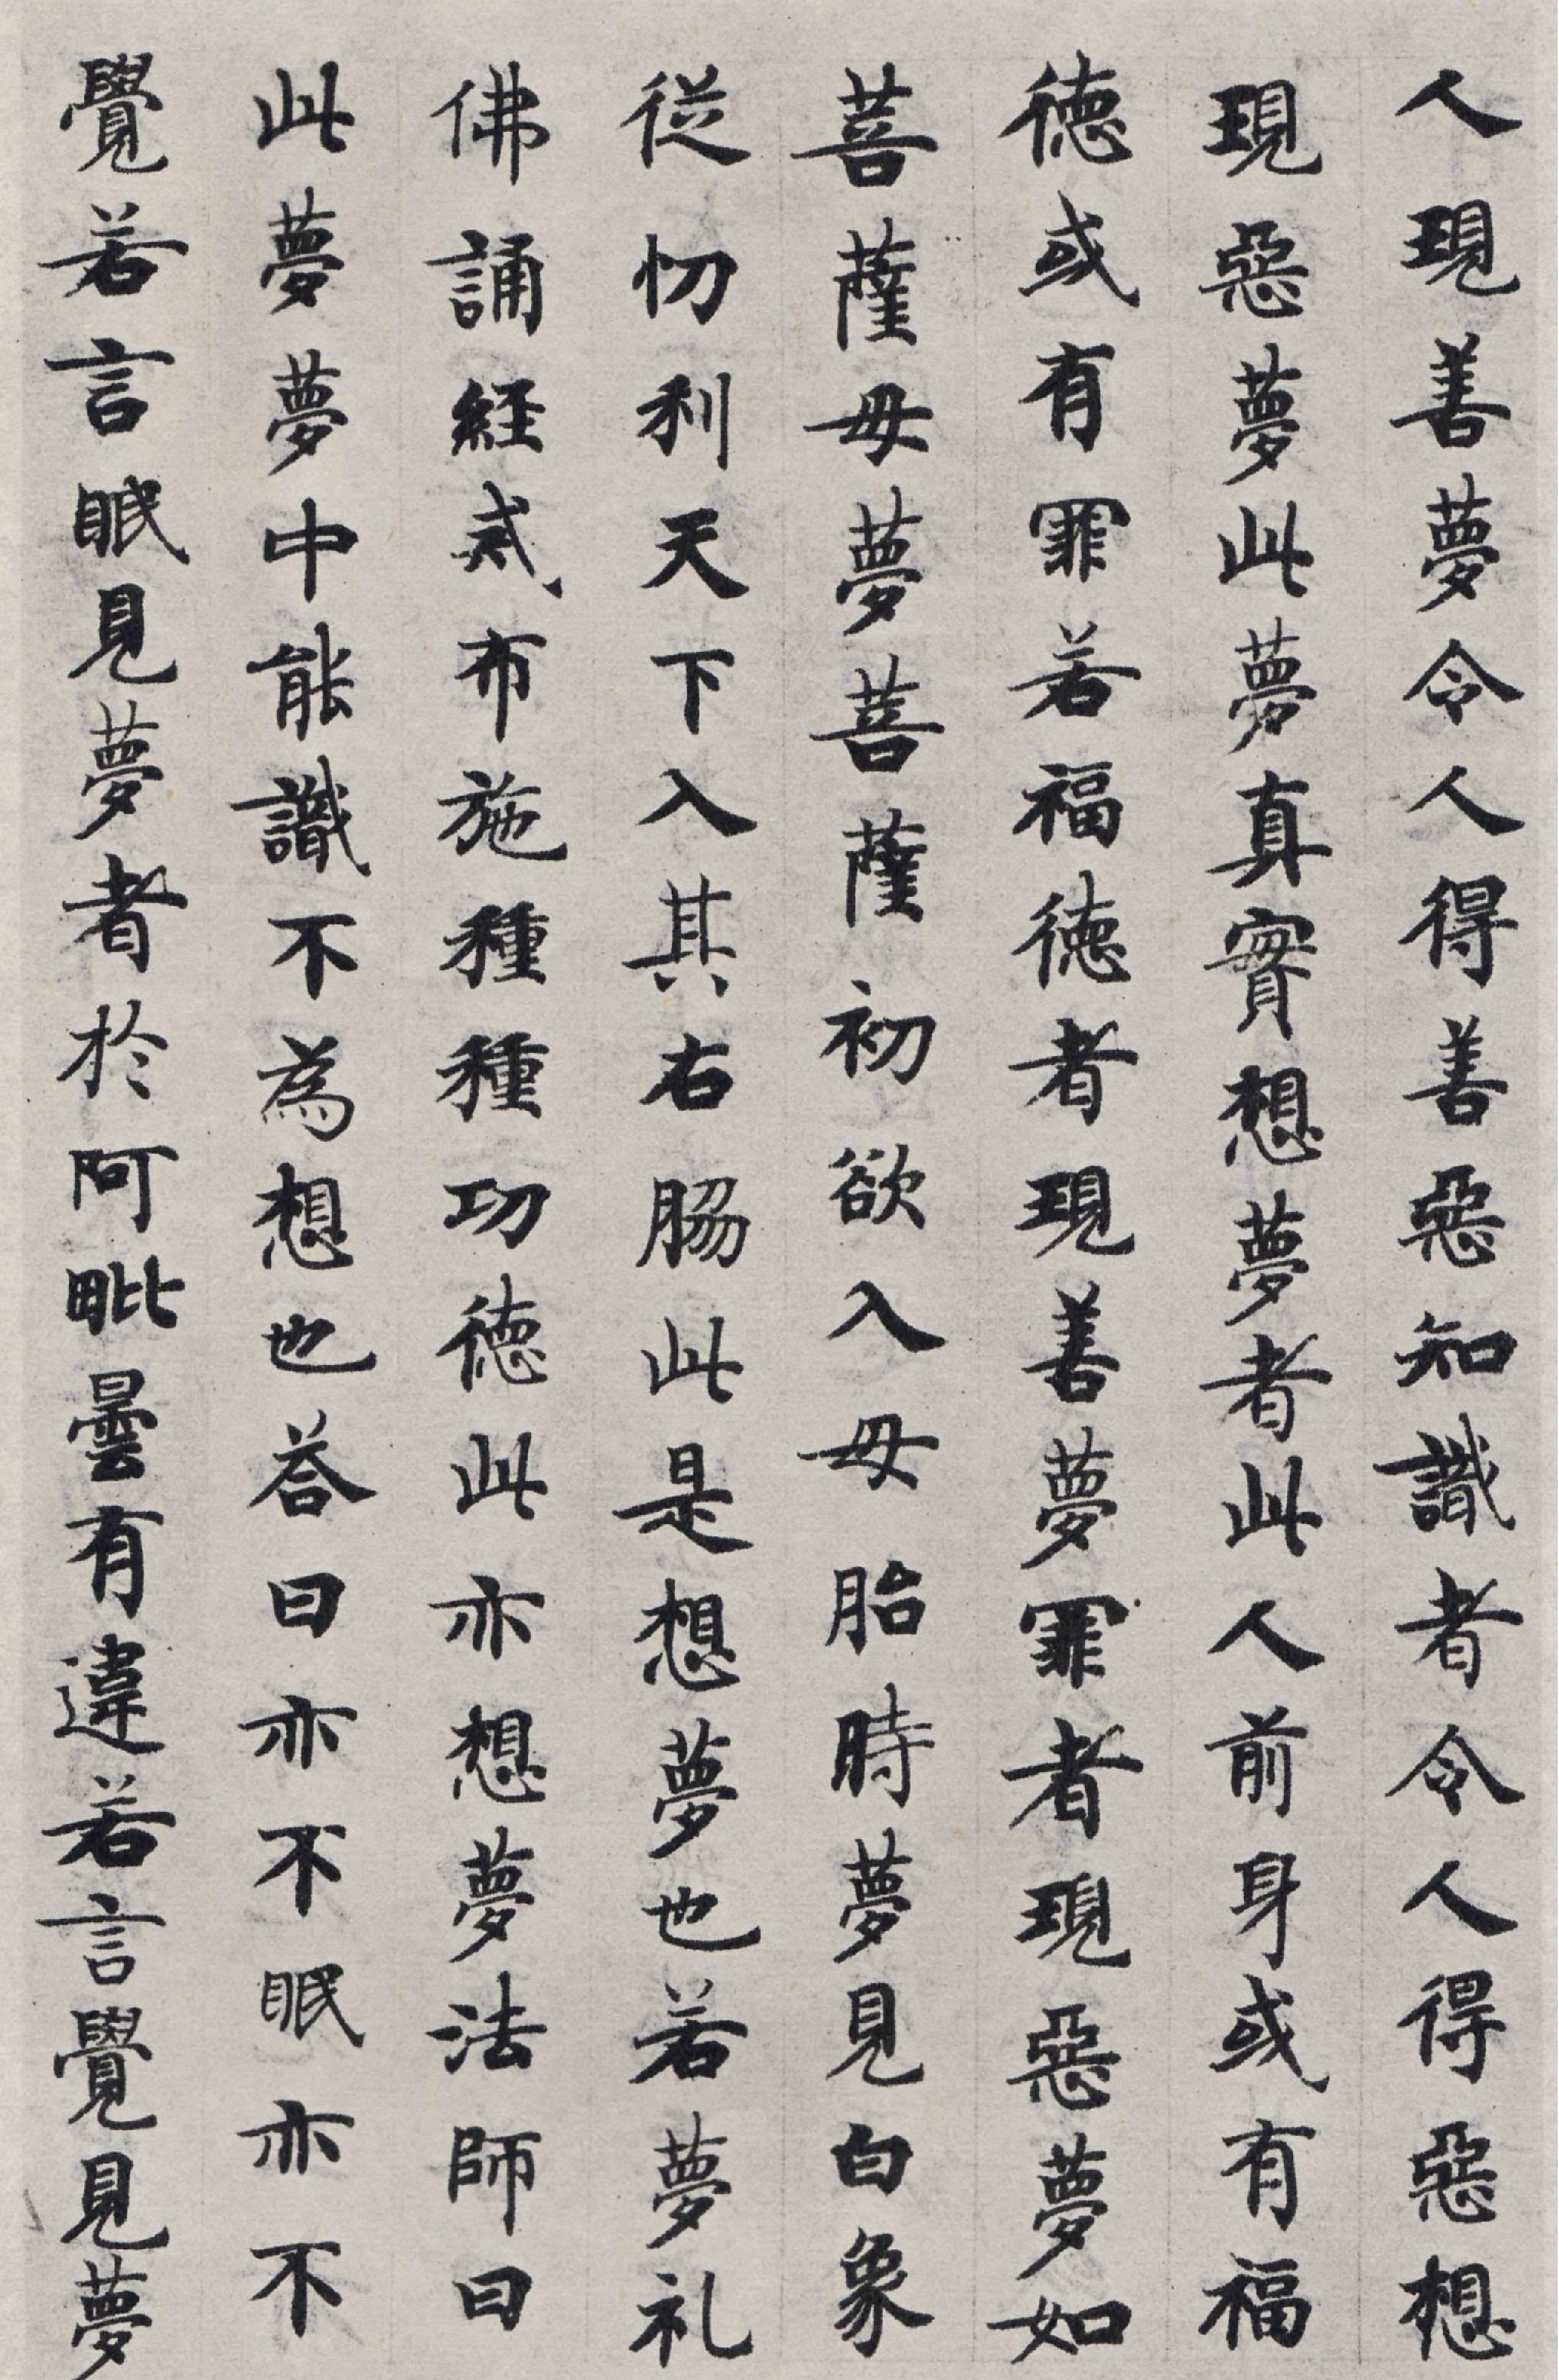 人現善夢令人得善惡知識者令人得惡想
現惡夢此夢真實想夢者此人前身或有福
德或有罪若福德者現善夢罪者現惡夢如
菩薩母夢菩薩初欲入母胎時夢見白象
從忉利天下入其右脇此是想夢也若夢礼
佛誦經或布施種種功德此亦想夢法師曰
此夢夢中能識不為想也荅曰亦不眠亦不
覺若言眠見夢者於阿毗曇有違若言覺見夢